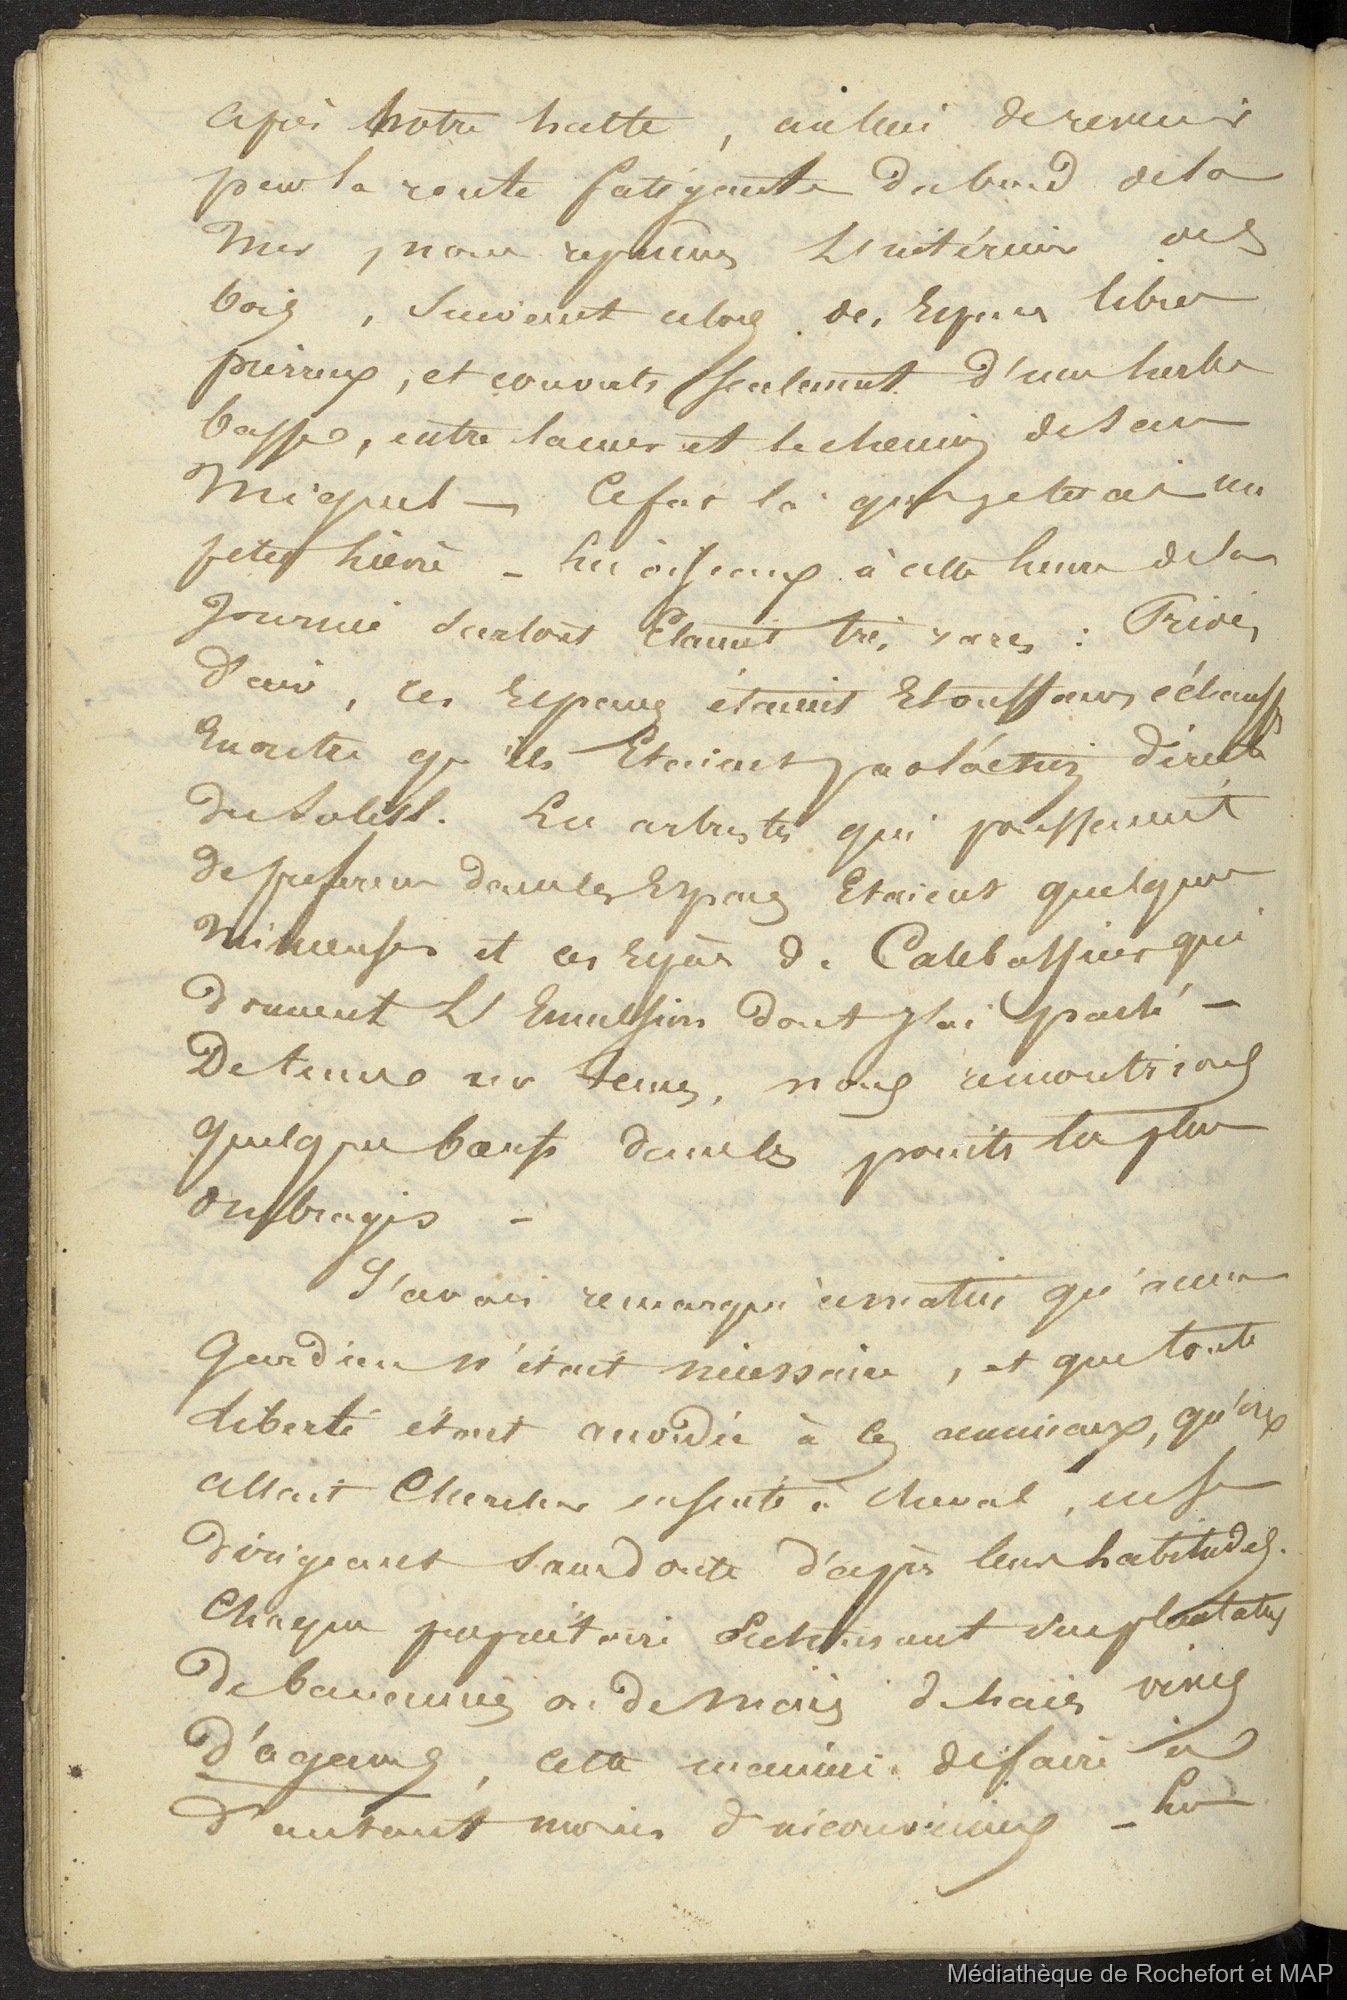 après notre halte, au lieu de revenir
par la route fatigante du bord de la
Mer, nous reprimes L'intérieur des
bois, Suivant alors des Espaces libres
pierreux, et couverts seulement d'une herbe
basse, entre la mer et le chemin de San
Miguel — Ce fut là que je tuai un
petit lièvre — Les oiseaux à cette heure de la
Journée Surtout Etaient très rares : Privés
d'air, ces Espaces étaient Etouffans, échauffés
En outre qu'ils Etaient par l'action directe
du Soleil. Les arbustes qui poussaient
de preference dans les Espaces Etaient quelques
Mimeuses et ces Espèces de Calebassiers qui
donnent L'Emulsion dont j'ai parlé —
De tems en tems, nous rencontrions
quelques bœufs dans les points les plus
ombragés —
J'avais remarqué ce matin qu'aucun
Gardien n'était nécessaire, et que toute
liberté étant accordée à ces animaux, qu'on
allait Chercher ensuite à cheval, en se
dirigeant Sans doute d'après leurs habitudes.
Chaque propriétaire ses plantations
de bananiers ou de Maïs de haies vives
d'agaves, cette manière de faire a
d'autant moins d'inconvéniens — Les